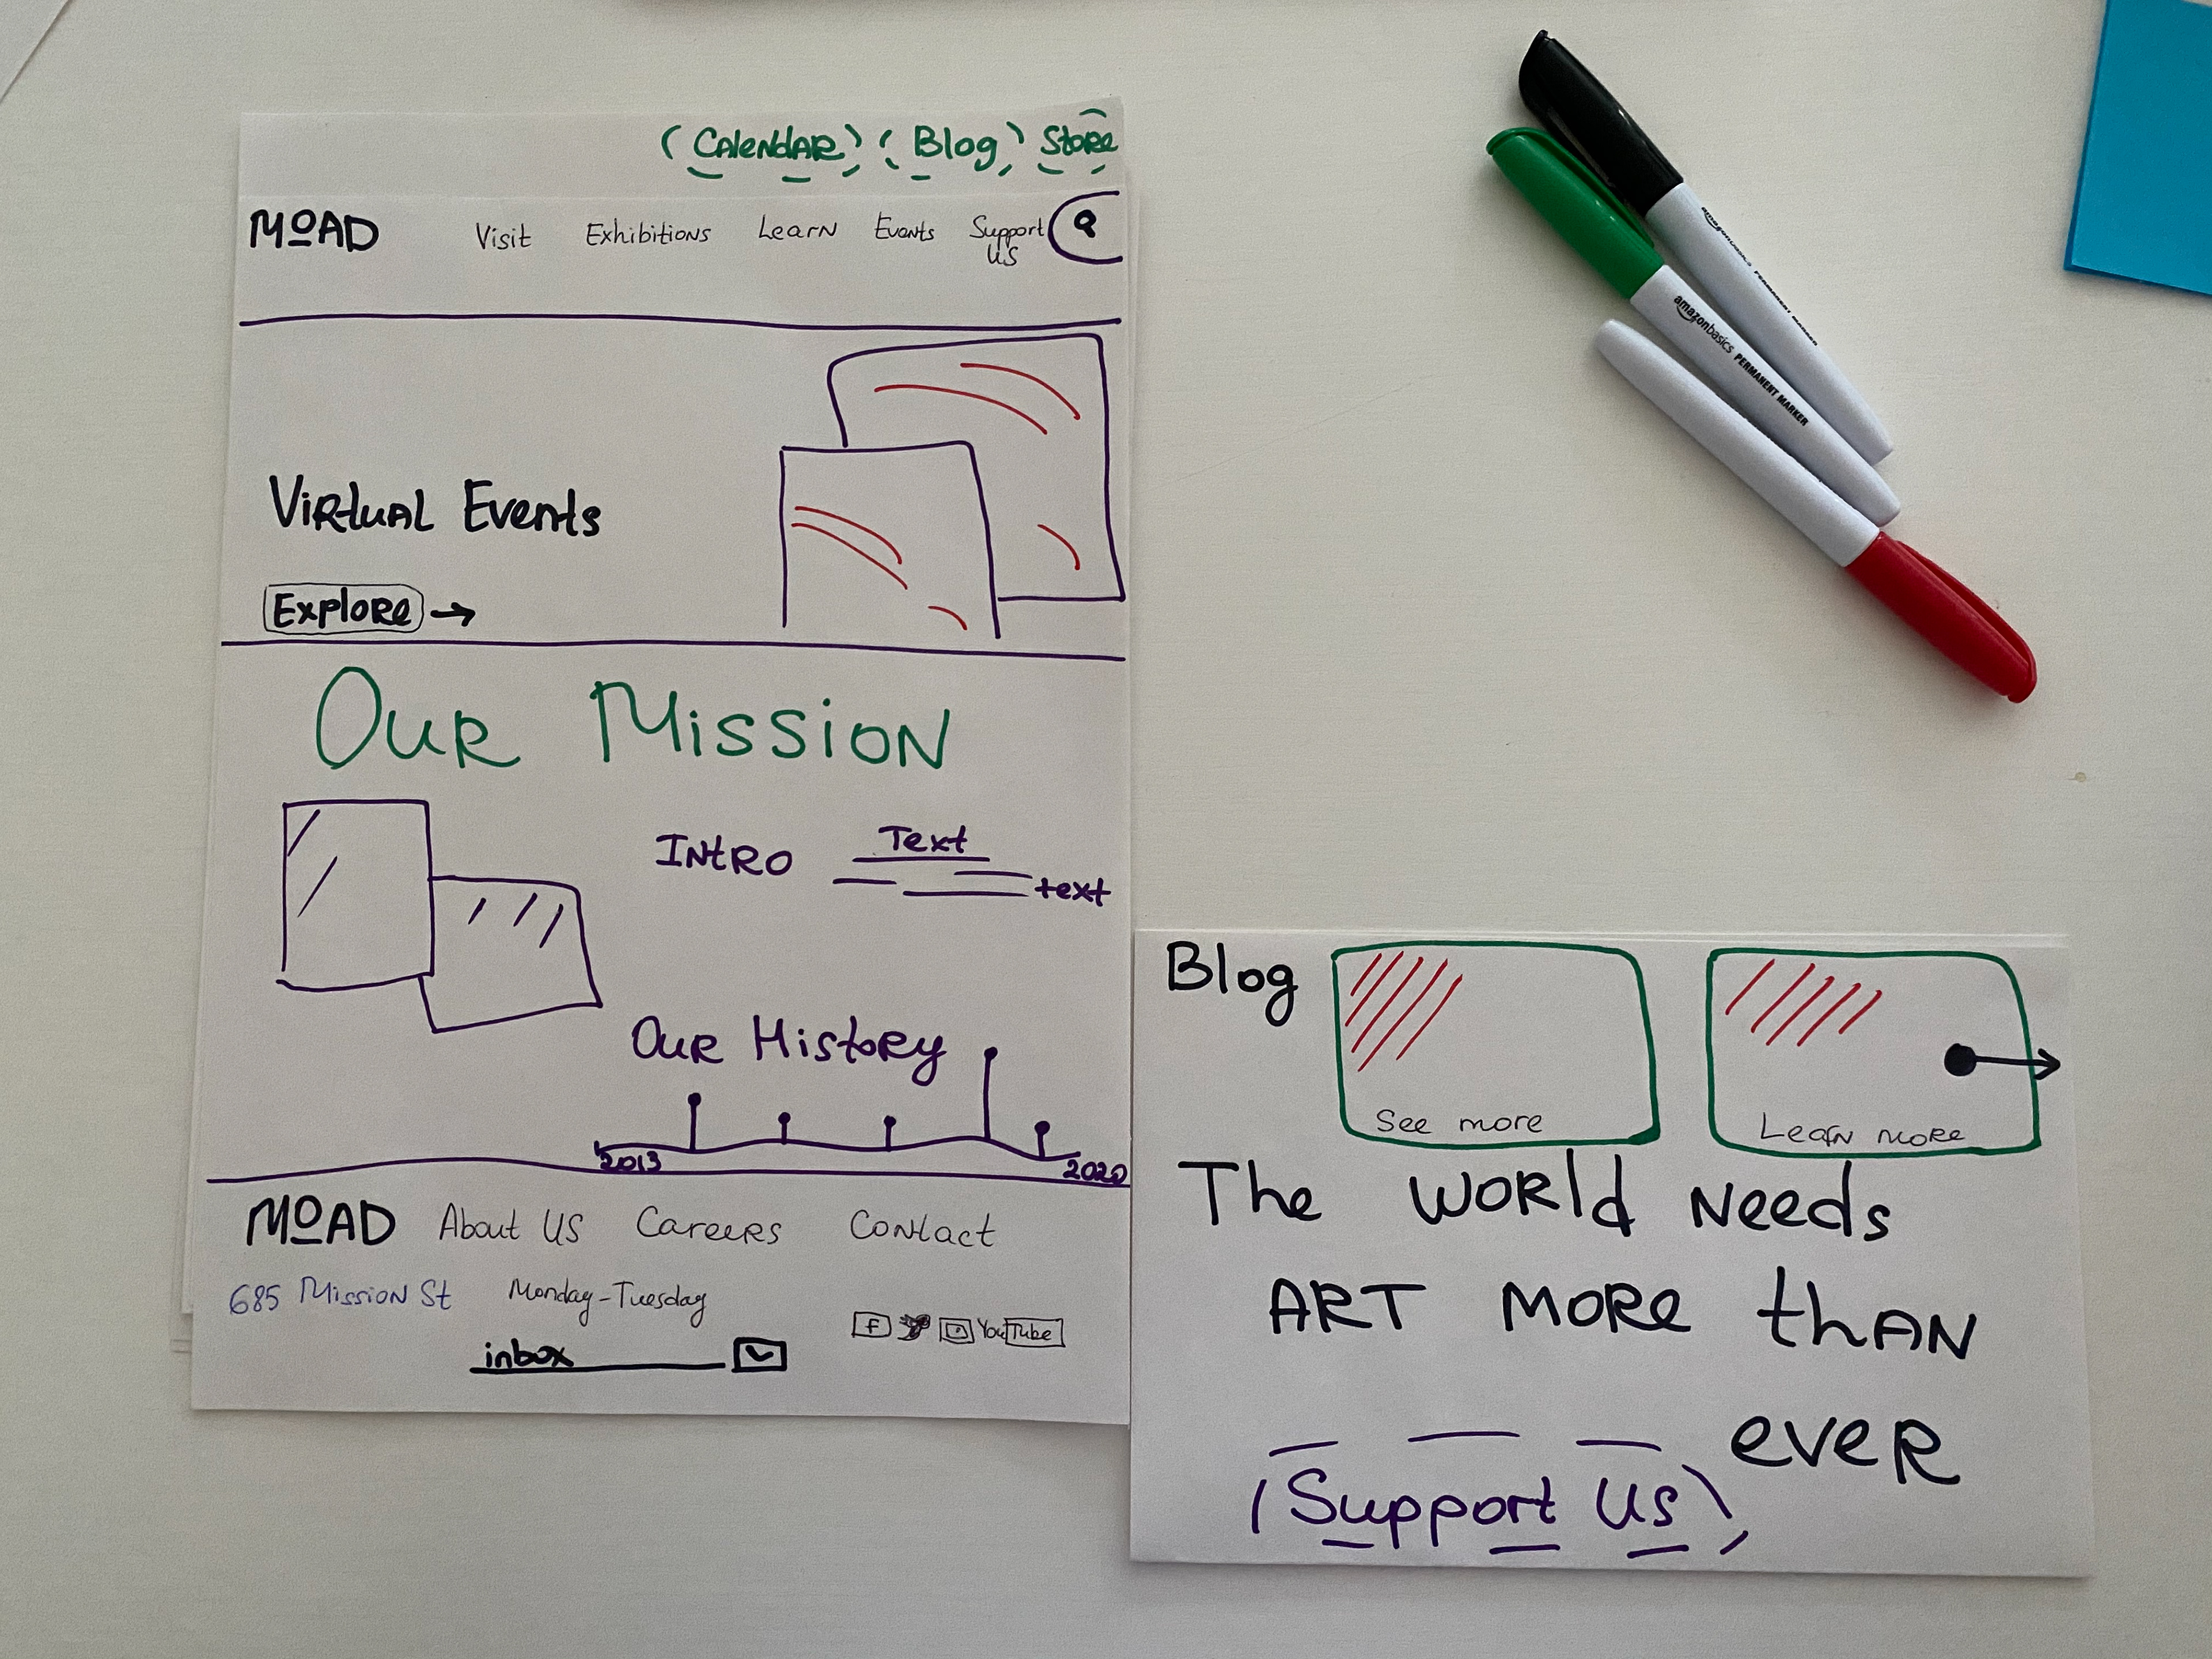 Calendar Blog Store
MoAD Visit Exhibitions Learn Events Support
us
Virtual Events
Explore
Our Mission
Intro Text
text
Our History
2013 2020
MoAD About us Careers Contact
685 Mission St Monday-Tuesday
f YouTube
inbox
Blog
See more Learn more
The world needs
art more than
ever
Support us
amazonbasics PERMANENT MARKER
amazonbasics PERMANENT MARKER